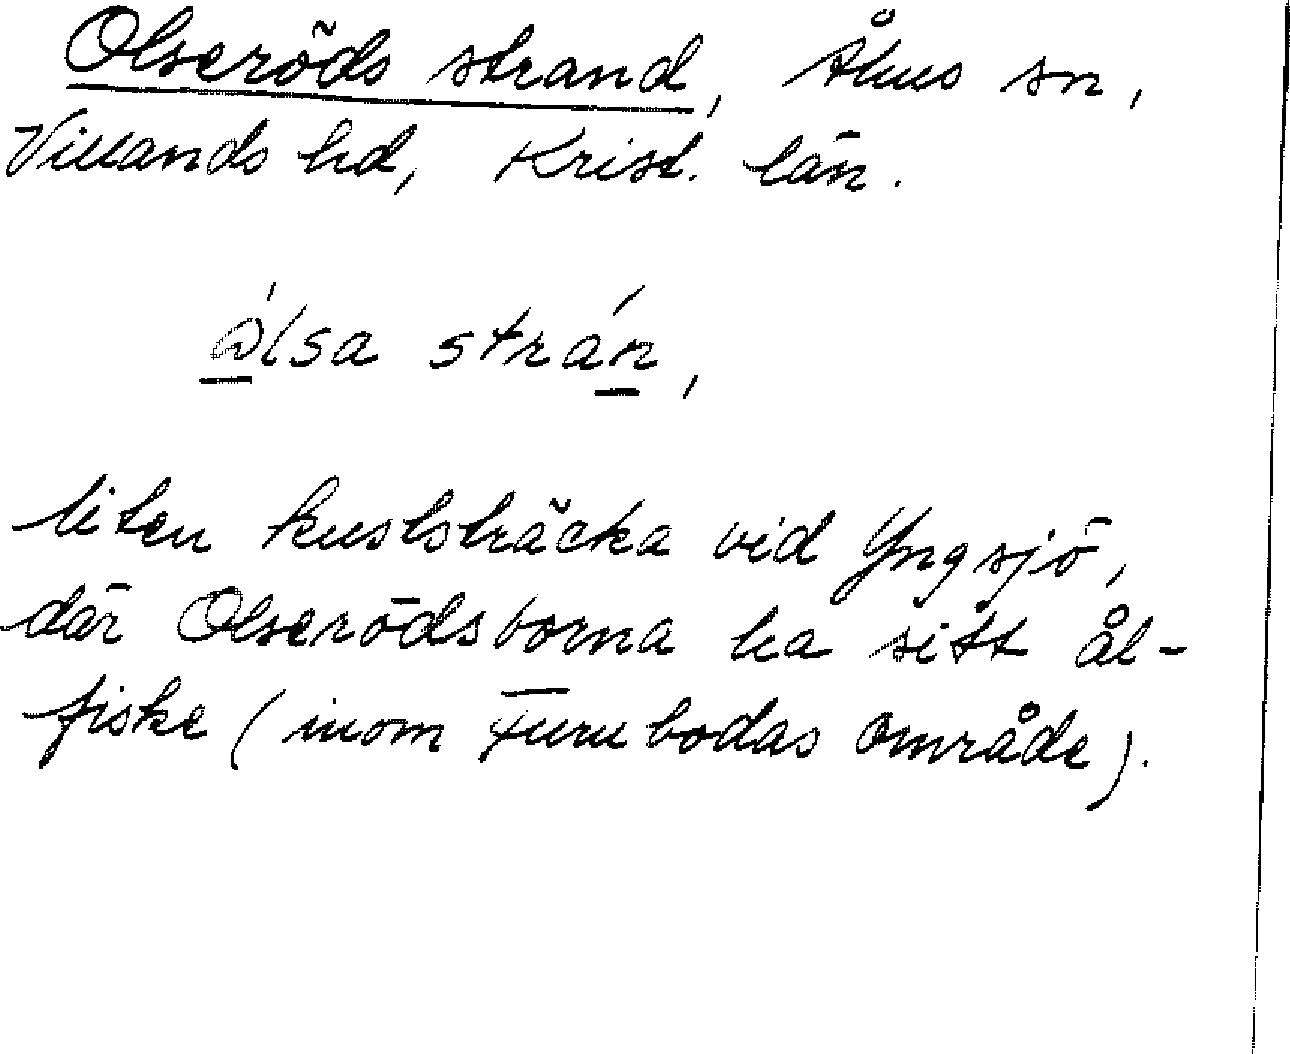 Olseröds strand, Åhus sn,
Villands hd, Krist. län.
ålsa strán,
liten kuststräcka vid Yngsjö,
där Olserödsborna ha sitt ål-
fiske (inom Furubodas område).